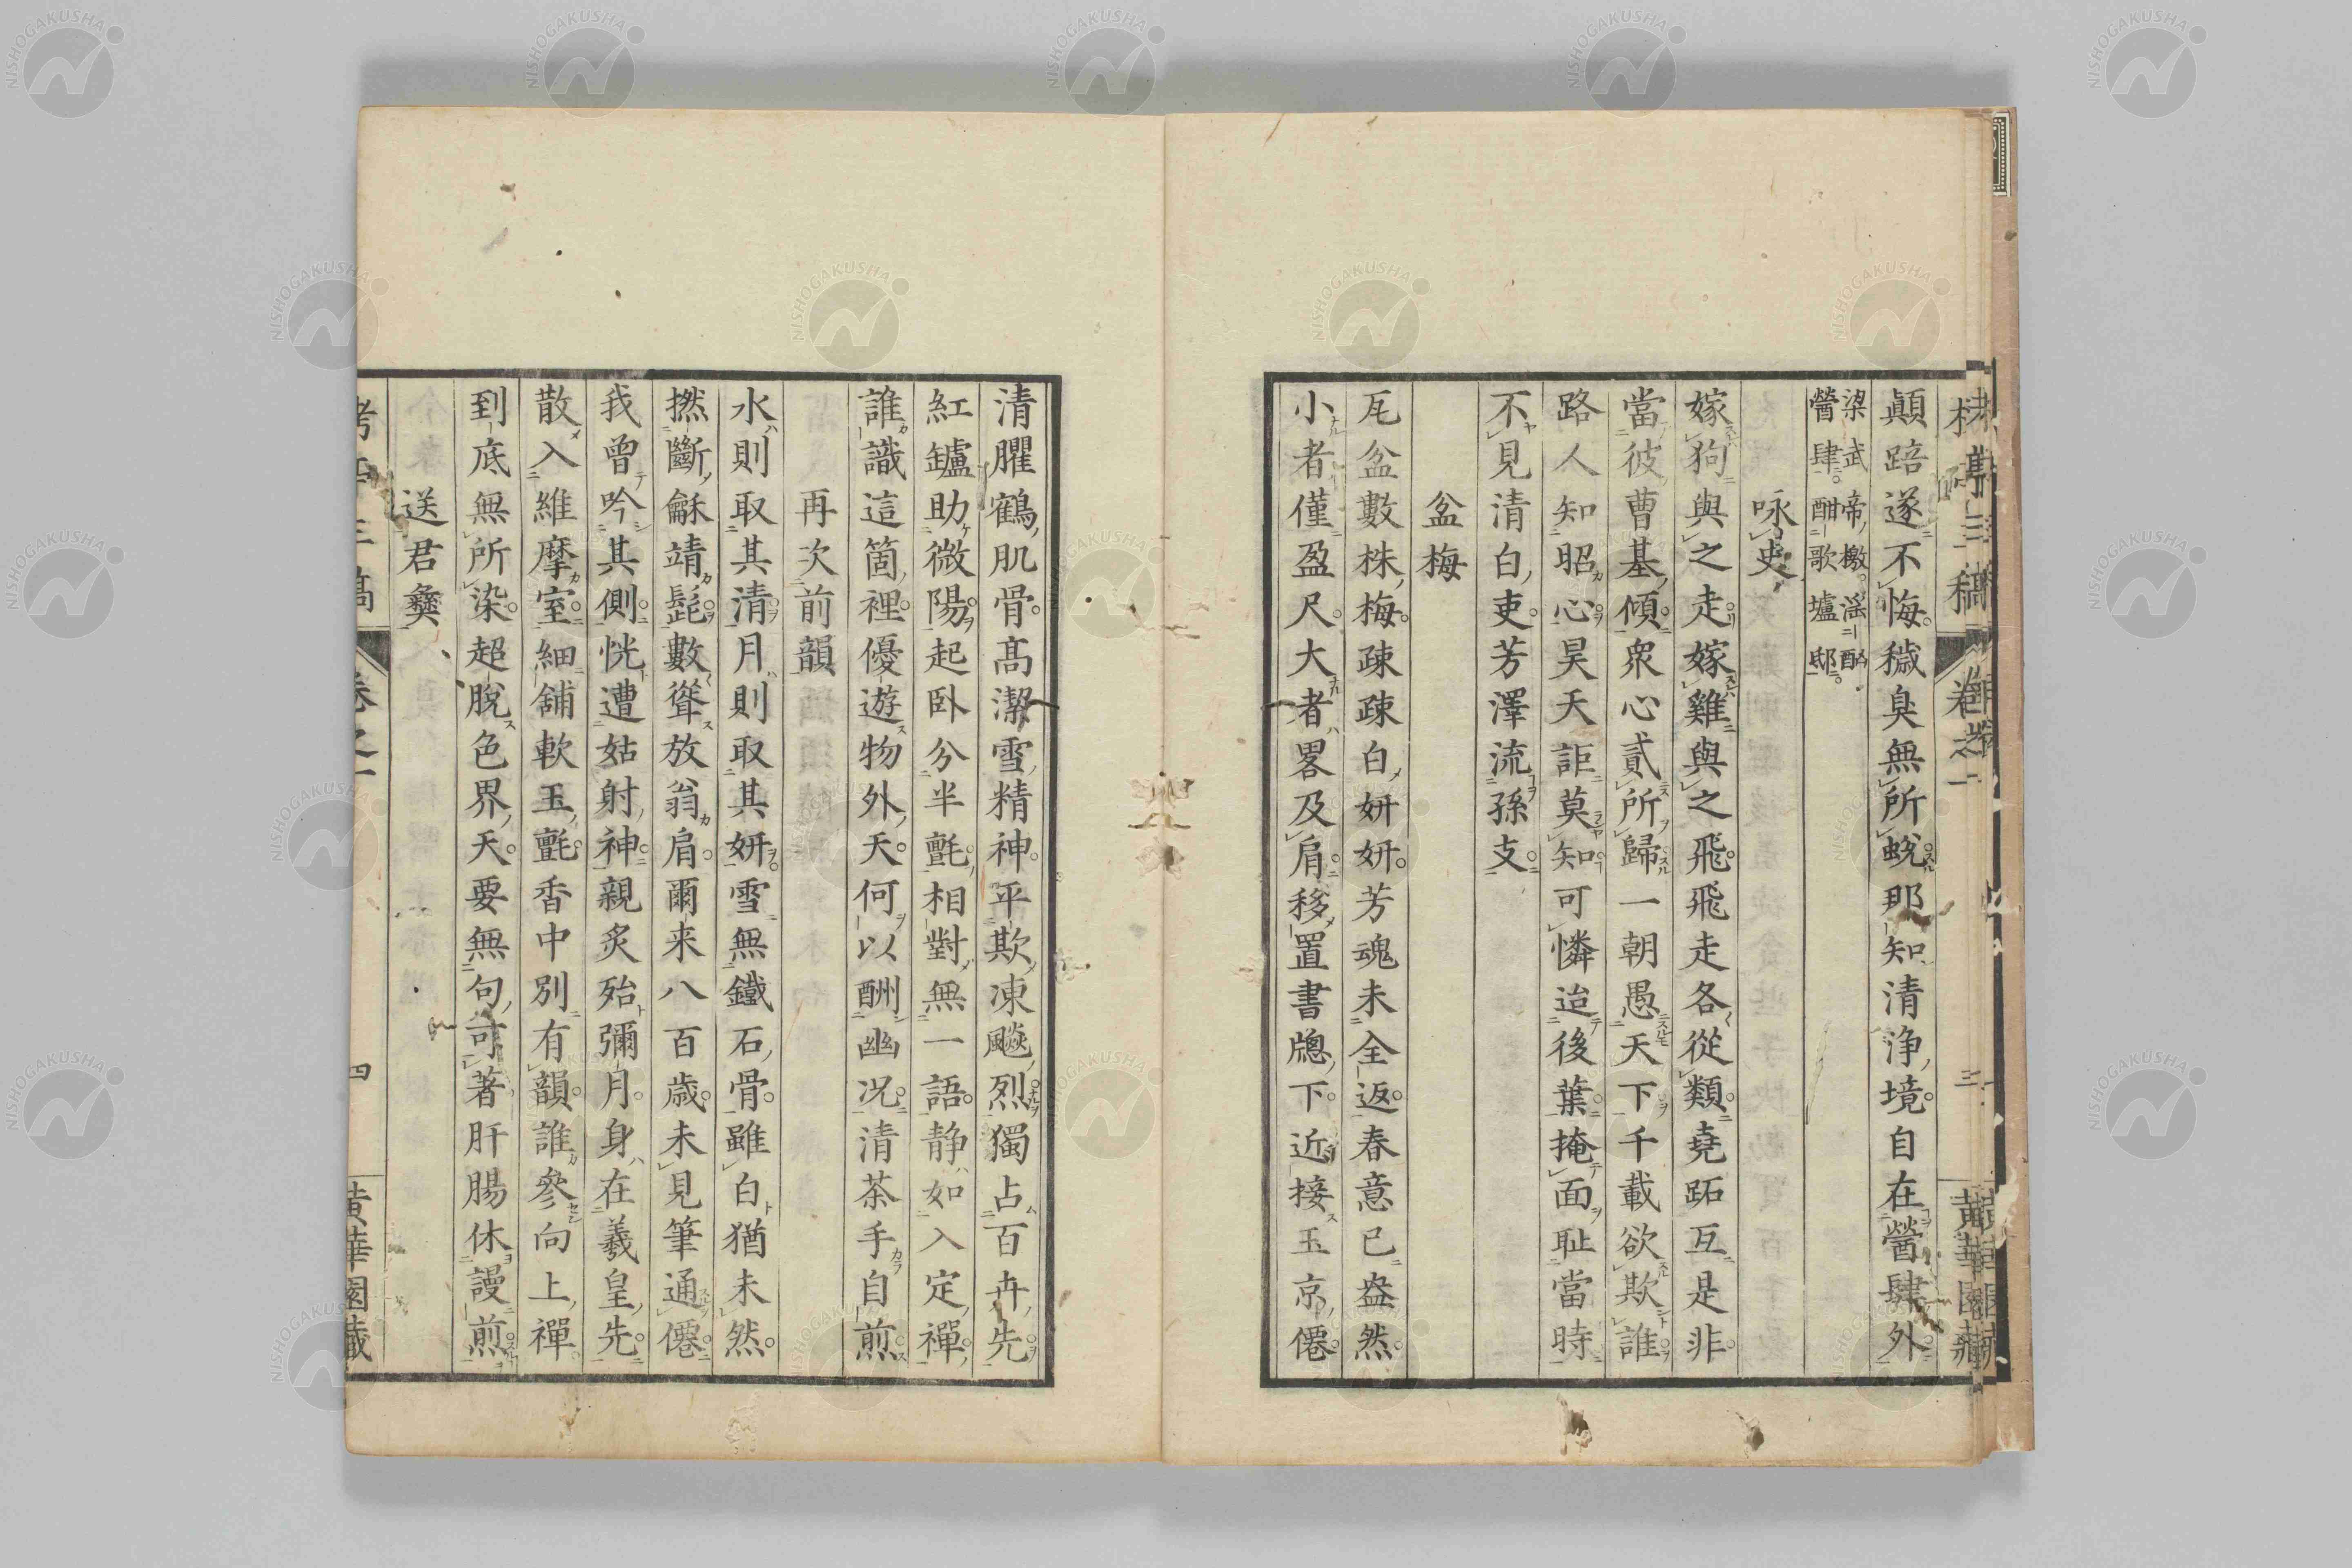 顛踣遂不悔穢臭無所蛻那知清浄境自在營肆外
梁武帝檄滛酗
營肆酣歌壚邸
咏史
嫁狗與之走嫁雞與之飛飛走各從類堯跖互是非
當彼曹基傾衆心貳所歸一朝愚天下千載欲欺誰
路人知昭心昊天詎莫知可憐迨後葉掩面耻當時
不見清白吏芳澤流孫支
盆梅
瓦盆數株梅疎疎白妍妍芳魂未全返春意已盎然
小者僅盈尺大者畧及肩移置書牕下近接玉京僊
清臞鶴肌骨高潔雪精神平欺凍飈烈獨占百卉先
紅鑪助微陽起卧分半氈相對無一語静如入定禪
誰識這箇裡優遊物外天何以酬幽况清茶手自煎
再次前韻
水則取其清月則取其妍雪無鐵石骨雖白猶未然
撚斷龢靖髭數聳放翁肩爾来八百歳未見筆通僊
我曾吟其側恍遭姑射神親炙殆彌月身在羲皇先
散入維摩室細舖軟玉氈香中別有韻誰參向上禪
到底無所染超脱色界天要無句可著肝腸休謾煎
送君彜
卷之一
四
黄華園藏